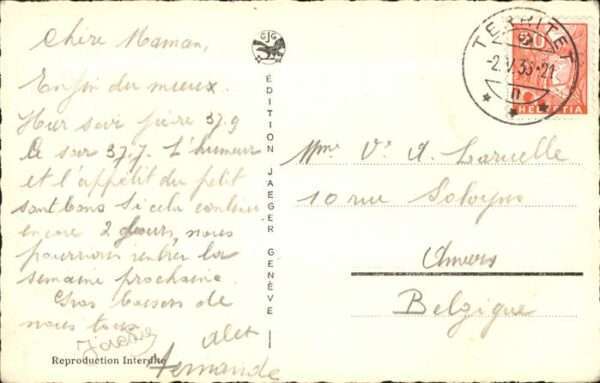 Chère Maman,
Enfin du mieux.
Hier soir fièvre 37.9
Ce soir 37,7. L'humeur
et l'appétit du petit
sont bons Si cela continue
encore 2 jours, nous
pourrions rentrer la
semaine prochaine.
Gros baisers de
nous tous
Alex
Fernande
Reproduction Interdite
GJG
EDITION JAEGER GENÈVE
TERRITET
-2.V.35-21
20
HELVETIA
Mme Ve A. Laruelle
10 rue Solvyns
Anvers
Belgique